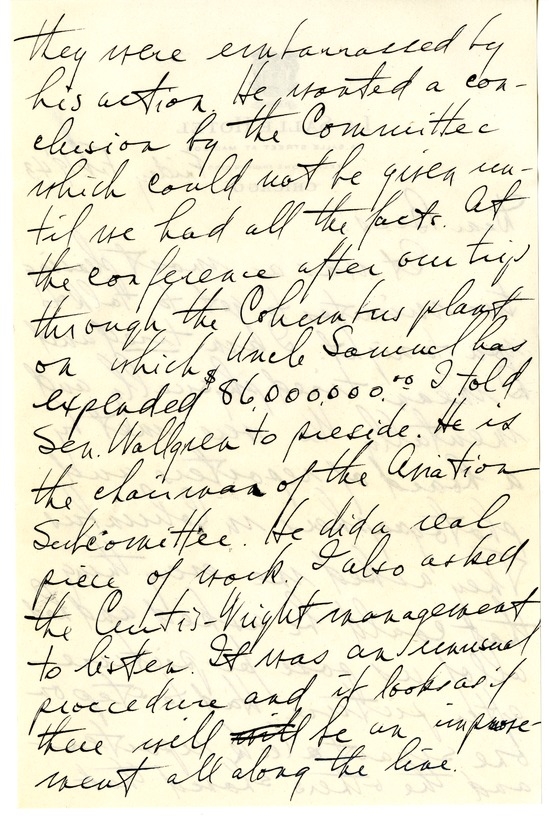 they were embarrassed by
his action. He wanted a con-
clusion by the Committee
which could not be given un-
til we had all the facts. At
the conference after our trip
through the Columbus plant
on which Uncle Samuel has
expended $86,000,000.00 I told
Sen. Wallgren to preside. He is
the chairman of the Aviation
Subcomittee. He did a real
piece of work. I also asked
the Curtis-Wright management
to listen. It was an unusual
procedure and it looks as if
there will will be an improve-
ment all along the line.